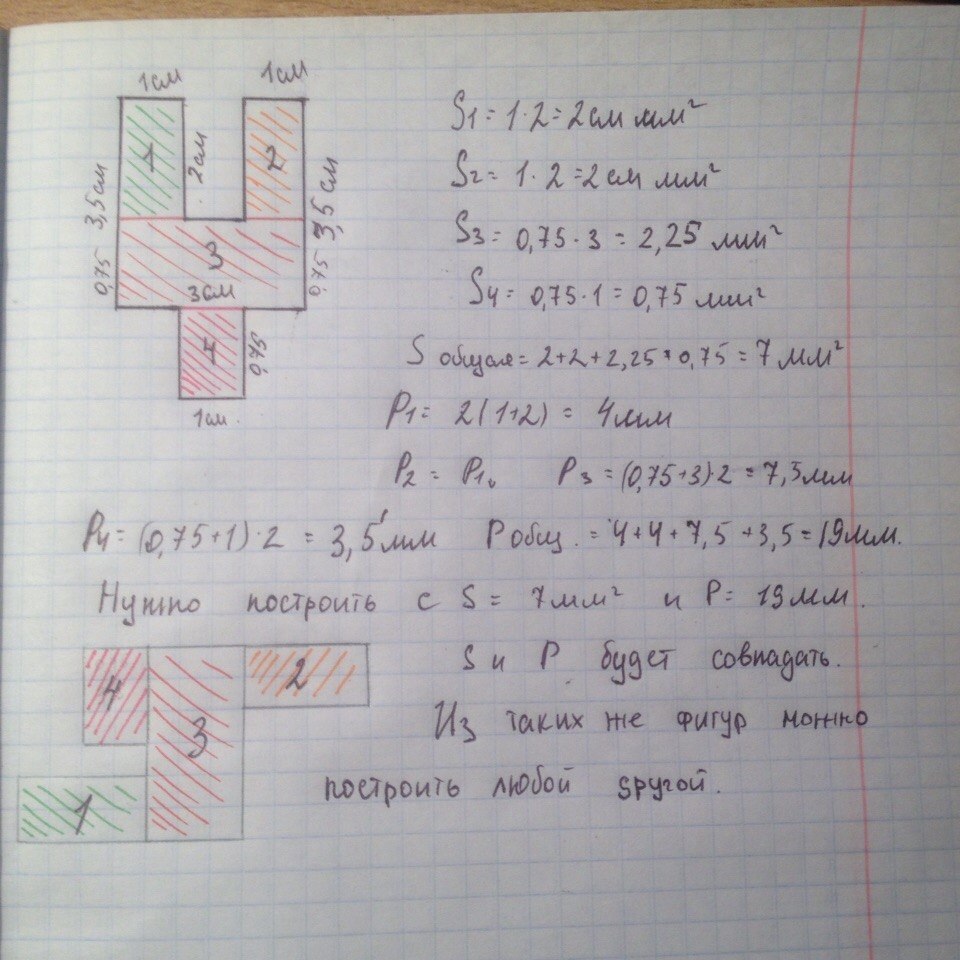 1см 1см
1 2см 2
3,5см 3,5см
3
0,75 3см 0,75
4 0,75
1см.
S1 = 1·2 = 2см мм²
S2 = 1·2 = 2см мм²
S3 = 0,75·3 = 2,25 мм²
S4 = 0,75·1 = 0,75 мм²
S общая = 2+2+2,25+0,75 = 7мм²
P1 = 2(1+2) = 4мм
P2 = P1. P3 = (0,75+3)·2 = 7,5мм
P4 = (0,75+1)·2 = 3,5мм Pобщ. = 4+4+7,5+3,5=19мм.
Нужно построить с S = 7мм² и P = 19мм.
4 3 2 S и P будет совпадать.
Из таких же фигур можно
1 построить любой другой.